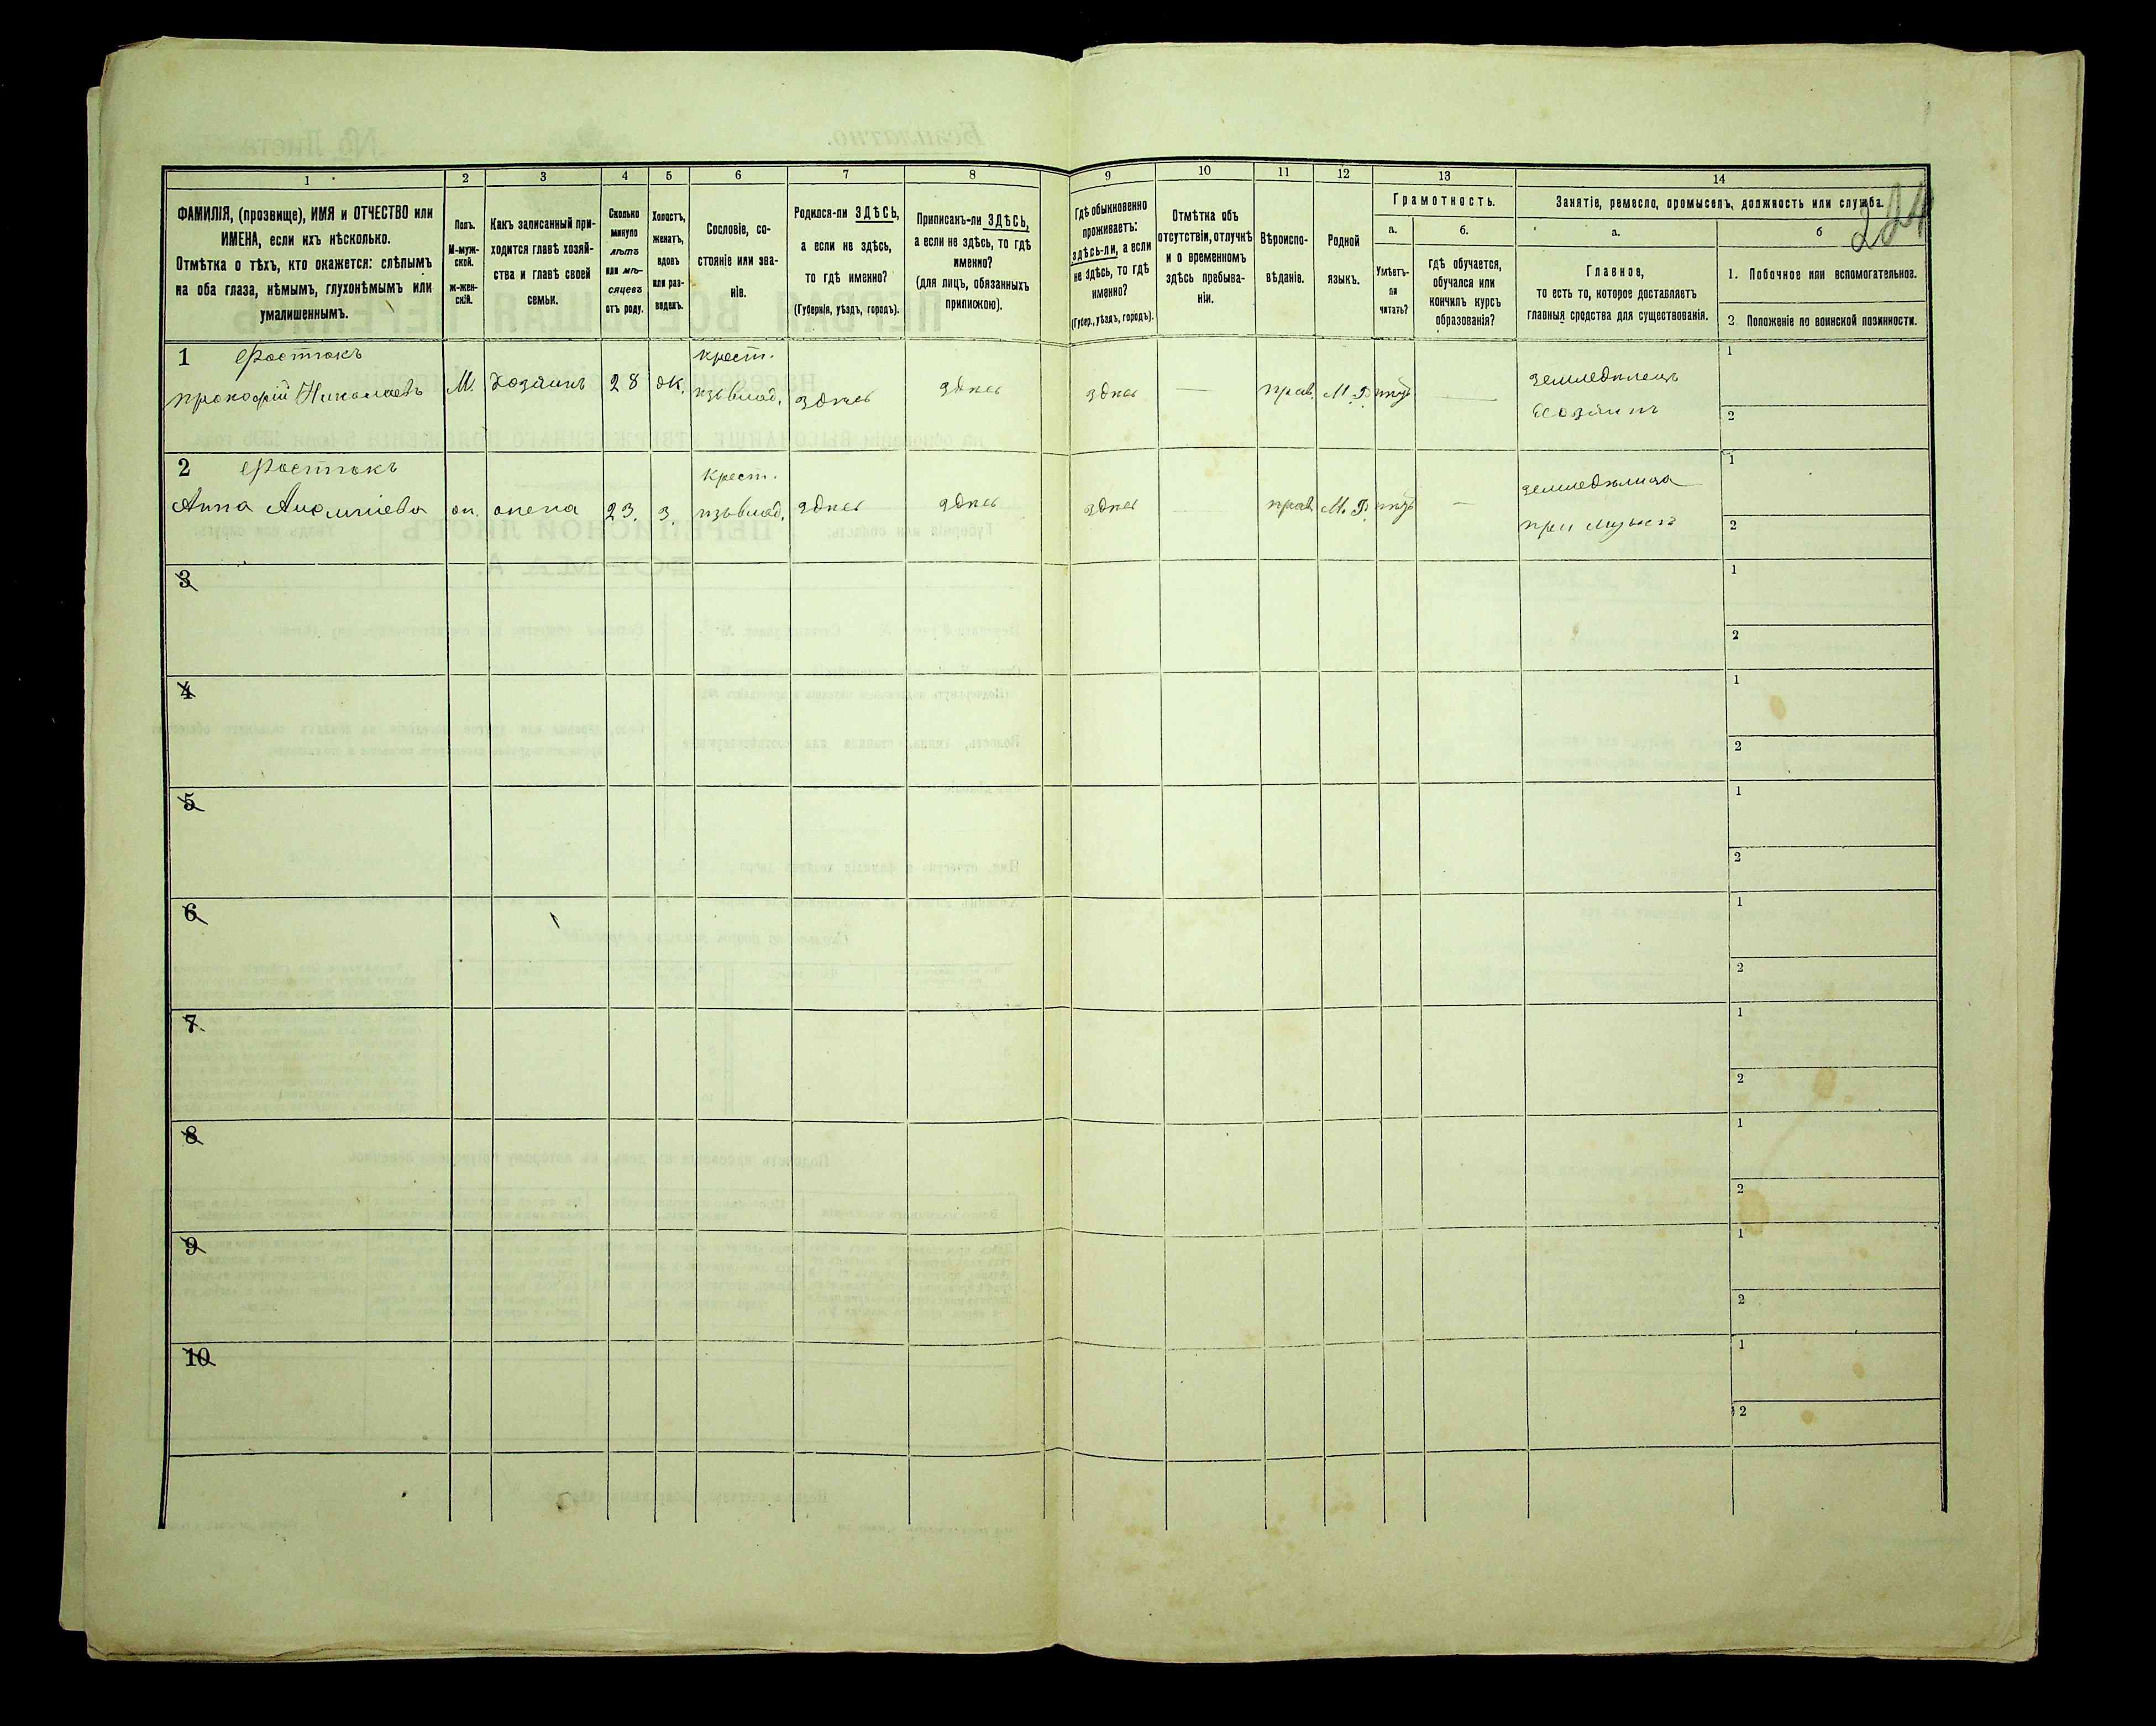 1 2 3 4 5 6 7 8 9 10 11 12 13 14
ФАМИЛІЯ, (прозвище), ИМЯ и ОТЧЕСТВО или
ИМЕНА, если ихъ нѣсколько.
Отмѣтка о тѣхъ, кто окажется: слѣпымъ
на оба глаза, нѣмымъ, глухонѣмымъ или
умалишеннымъ.
Полъ.
М-муж-
ской.
ж-жен-
скій.
Какъ записанный при-
ходится главѣ хозяй-
ства и главѣ своей
семьи.
Сколько
минуло
лѣтъ
или мѣ-
сяцевъ
отъ роду.
Холостъ,
женатъ,
вдовъ
или раз-
веденъ.
Сословіе, со-
стояніе или зва-
ніе.
Родился-ли ЗДѢСЬ,
а если не здѣсь,
то гдѣ именно?
(Губернія, уѣздъ, городъ).
Приписанъ-ли ЗДѢСЬ,
а если не здѣсь, то гдѣ
именно?
(для лицъ, обязанныхъ
припискою).
Гдѣ обыкновенно
проживаетъ:
здѣсь-ли, а если
не здѣсь, то гдѣ
именно?
(Губер., уѣздъ, городъ).
Отмѣтка объ
отсутствіи, отлучкѣ
и о временномъ
здѣсь пребыва-
ніи.
Вѣроиспо-
вѣданіе.
Родной
языкъ.
Грамотность.
а.
Умѣетъ-
ли
читать?
б.
гдѣ обучается,
обучался или
кончилъ курсъ
образованія?
Занятіе, ремесло, промыселъ, должность или служба.
а.
Главное,
то есть то, которое доставляетъ
главныя средства для существованія.
б
1. Побочное или вспомогательное.
2. Положеніе по воинской повинности.
224
1 Ростокъ крест.
прокофій Николаевъ М. Хозяинъ 28 ж. здѣсь здѣсь здѣсь — прав. М. Р. — земледѣлецъ
Хозяинъ
1
2
2 Ростокъ крест.
Анна 23. з. здѣсь здѣсь здѣсь прав. М. Р. — земледѣлица
при
1
2
3
1
2
4
1
2
5
1
2
6
1
2
7
1
2
8
1
2
9
1
2
10
1
2